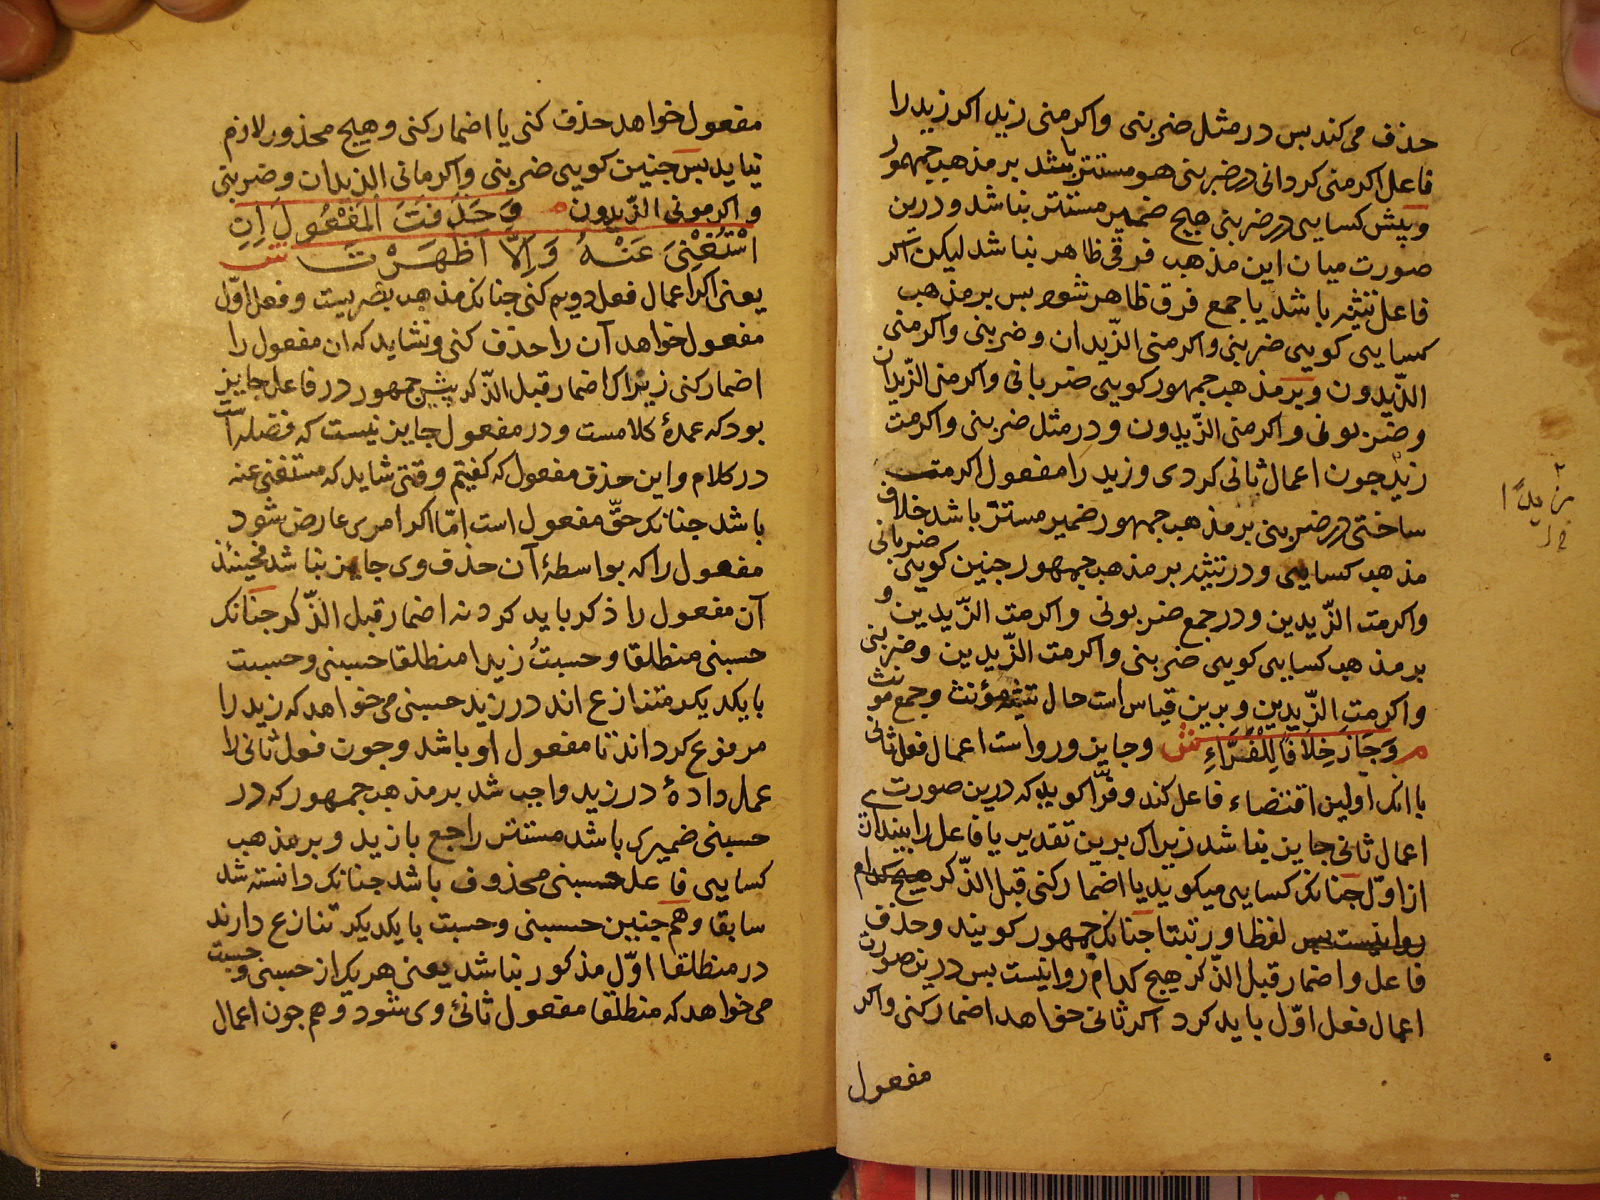 حذف می کند بس در مثل ضربنی واکرمنی زید اکر زید را
فاعل اکرمنی کردانی در ضربنی هو مستتر باشد بر مذهب جمهور
و پیش کسایی در ضربنی هیج ضمیر مستتر نباشد و درین
صورت میان این مذهب فرقی ظاهر نباشد لیکن اکر
فاعل تثنیه باشد یا جمع فرق ظاهر شود بس بر مذهب
کسایی کویی ضربنی واکرمنی الزّیدان و ضربنی واکرمنی
الزّیدون و بر مذهب جمهور کویی ضربانی واکرمنی الزّیدان
و ضربونی واکرمنی الزّیدون و در مثل ضربنی واکرمت
زید جون اعمال ثانی کردی و زید را مفعول اکرمت
ساختی در ضربنی بر مذهب جمهور ضمیر مستتر باشد خلاف
مذهب کسایی و در تثنیه بر مذهب جمهور جنین کویی ضربانی
واکرمت الزّیدین و در جمع ضربونی واکرمت الزّیدین و
بر مذهب کسایی کویی ضربنی واکرمت الزّیدین و ضربنی
واکرمت الزّیدین و برین قیاس است حال تثنیه مؤنث و جمع مونث
م وَجَازَ خِلَافًا لِلْفَرَّاءِ ش و جایز و رواست اعمال فعل ثانی
با انک اولین اقتضاء فاعل کند و فرّا کوید که درین صورت
اعمال ثانی جایز نباشد زیراک برین تقدیر یا فاعل را بیندازی
از اوّل جنانک کسایی میکوید یا اضمار کنی قبل الذّکر هیج کدام
روا نیست بس لفظا و رتبتا جنانک جمهور کویند و حذف
فاعل و اضمار قبل الذّکر هیج کدام روا نیست بس درین صورت
اعمال فعل اوّل باید کرد اکر ثانی خواهد اضمار کنی واکر
مفعول
۲
زیدًا
مفعول خواهد حذف کنی یا اضمار کنی و هیج محذور لازم
نیاید بس جنین کویی ضربنی واکرمانی الزیدان و ضربنی
واکرمونی الزّیدون م وَحَذَفْتَ الْمَفْعُولَ اِنِ
اسْتُغْنِیَ عَنْهُ وَ اِلَّا اَظْهَرْتَ ش
یعنی اکر اعمال فعل دویم کنی جنانک مذهب بصریست و فعل اوّل
مفعول خواهد آن را حذف کنی و نشاید که ان مفعول را
اضمار کنی زیراک اضمار قبل الذّکر پیش جمهور در فاعل جایز
بود که عمدهٔ کلامست و در مفعول جایز نیست که فضله است
در کلام و این حذف مفعول که کفتیم وقتی شاید که مستغنی عنه
باشد جنانک حقّ مفعول است امّا اکر امری عارض شود
مفعول را که بواسطهٔ آن حذف وی جایز نباشد فحینئذ
آن مفعول را ذکر باید کرد نه اضمار قبل الذّکر جنانک
حسبنی منطلقا و حسبتُ زیدا منطلقا حسبنی و حسبت
با یکدیکر متنازع اند در زید حسبنی می خواهد که زید را
مرفوع کرداند تا مفعول او باشد و جون فعل ثانی را
عمل دادهٔ در زید واجب شد بر مذهب جمهور که در
حسبنی ضمیری باشد مستتر راجع با زید و بر مذهب
کسایی فاعل حسبنی محذوف باشد جنانک دانسته شد
سابقا و هم جنین حسبنی و حسبت با یکدیکر تنازع دارند
در منطلقا اوّل مذکور نباشد یعنی هر یک از حسبنی و حسبت
می خواهد که منطلقا مفعول ثانیٔ وی شود و هم جون اعمال